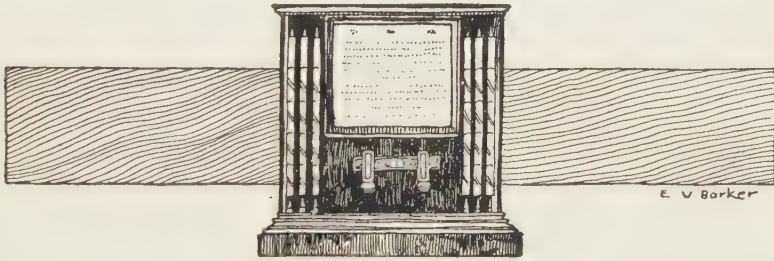 E V Barker